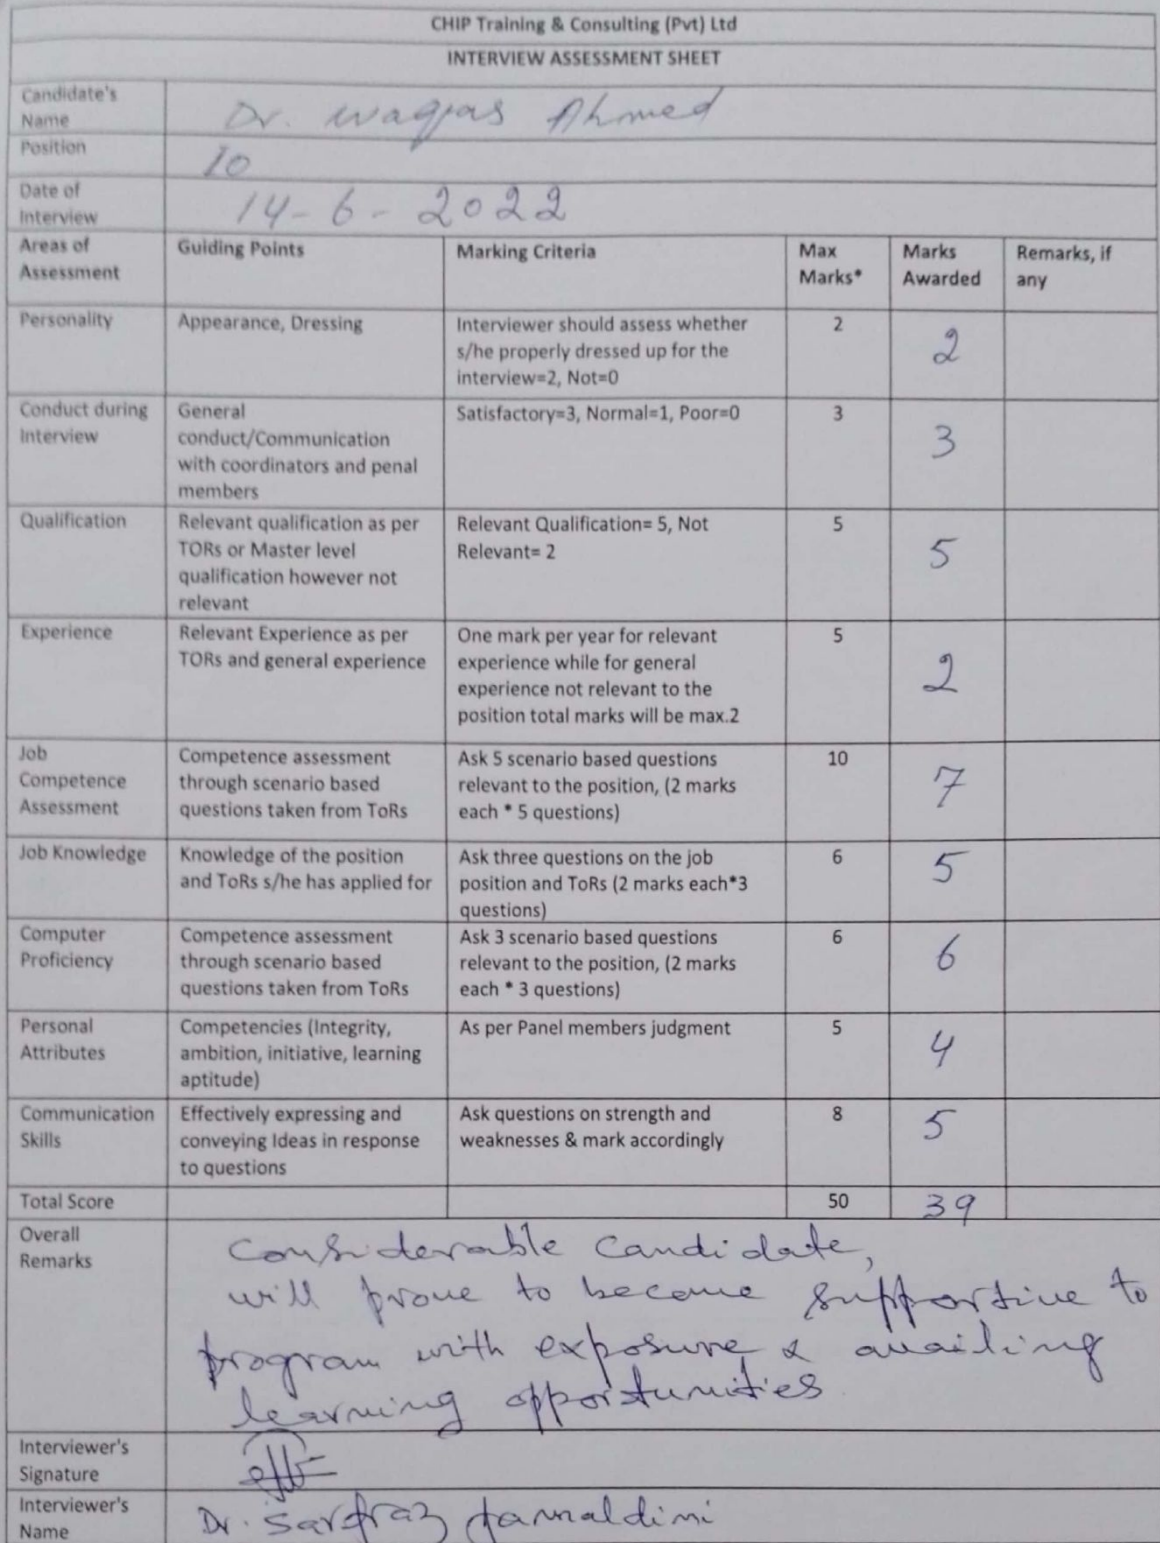 CHIP Training & Consulting (Pvt) Ltd
INTERVIEW ASSESSMENT SHEET
Candidate's Name Dr. Waqas Ahmed
Position IO
Date of Interview 14-6-2022
Areas of Assessment Guiding Points Marking Criteria Max Marks* Marks Awarded Remarks, if any
Personality Appearance, Dressing Interviewer should assess whether s/he properly dressed up for the interview=2, Not=0 2 2
Conduct during Interview General conduct/Communication with coordinators and penal members Satisfactory=3, Normal=1, Poor=0 3 3
Qualification Relevant qualification as per TORs or Master level qualification however not relevant Relevant Qualification= 5, Not Relevant= 2 5 5
Experience Relevant Experience as per TORs and general experience One mark per year for relevant experience while for general experience not relevant to the position total marks will be max.2 5 2
Job Competence Assessment Competence assessment through scenario based questions taken from ToRs Ask 5 scenario based questions relevant to the position, (2 marks each * 5 questions) 10 7
Job Knowledge Knowledge of the position and ToRs s/he has applied for Ask three questions on the job position and ToRs (2 marks each*3 questions) 6 5
Computer Proficiency Competence assessment through scenario based questions taken from ToRs Ask 3 scenario based questions relevant to the position, (2 marks each * 3 questions) 6 6
Personal Attributes Competencies (Integrity, ambition, initiative, learning aptitude) As per Panel members judgment 5 4
Communication Skills Effectively expressing and conveying Ideas in response to questions Ask questions on strength and weaknesses & mark accordingly 8 5
Total Score 50 39
Overall Remarks Considerable candidate,
will prove to become supportive to
program with exposure & availing
learning opportunities
Interviewer's Signature
Interviewer's Name Dr. Sarfraz